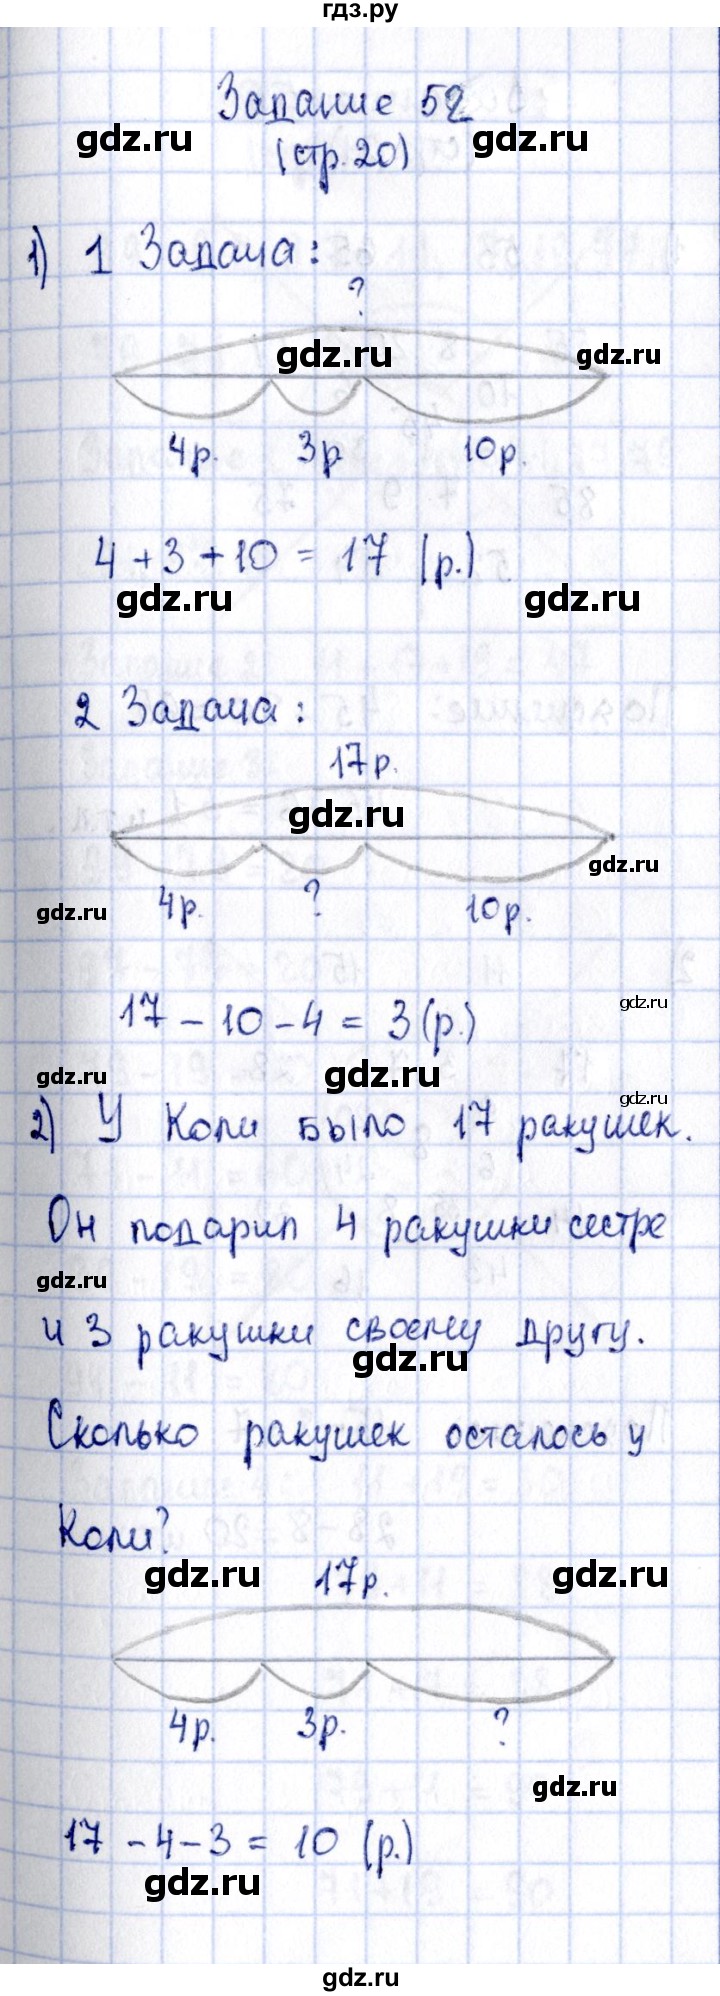 гдз.ру
Задание 52
gdz.ru gdz.ru
(стр. 20)
1) 1 Задача:
?
gdz.ru gdz.ru
4р. 3р 10р.
4 + 3 + 10 = 17 (р.)
gdz.ru gdz.ru
2 Задача:
17р.
gdz.ru
gdz.ru
4р. ? 10р.
gdz.ru
17 - 10 - 4 = 3 (р.)
gdz.ru
gdz.ru gdz.ru
gdz.ru
2) У Коли было 17 ракушек.
Он подарил 4 ракушки сестре
gdz.ru
и 3 ракушки своему другу.
gdz.ru
Сколько ракушек осталось у
Коли?
gdz.ru 17р. gdz.ru
4р. 3р. ?
gdz.ru
17 - 4 - 3 = 10 (р.)
gdz.ru
gdz.ru